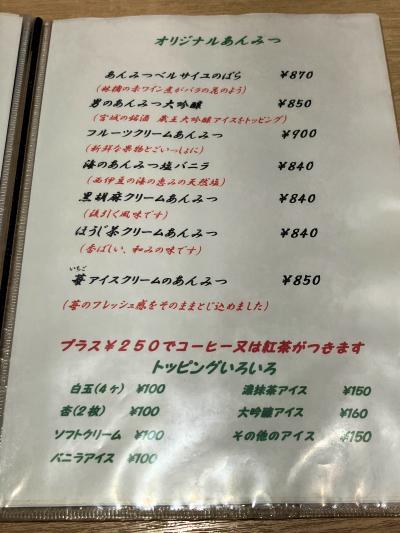 オリジナルあんみつ
あんみつベルサイユのばら ¥870
(林檎の赤ワイン煮がバラの花のよう)
男のあんみつ大吟醸 ¥850
(宮城の銘酒 蔵王大吟醸アイスをトッピング)
フルーツクリームあんみつ ¥900
(新鮮な果物とごいっしょに)
海のあんみつ塩バニラ ¥840
(西伊豆の海の恵みの天然塩)
黒胡麻クリームあんみつ ¥840
(後引く風味です)
ほうじ茶クリームあんみつ ¥840
(香ばしい、和みの味です)
いちご
苺アイスクリームのあんみつ ¥850
(苺のフレッシュ感をそのままとじ込めました)
プラス¥250でコーヒー又は紅茶がつきます
トッピングいろいろ
白玉(4ヶ) ¥100 濃抹茶アイス ¥150
杏(2枚) ¥100 大吟醸アイス ¥160
ソフトクリーム ¥100 その他のアイス ¥150
バニラアイス ¥100